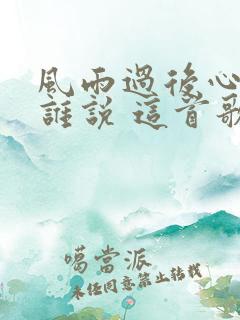 風雨過後心
誰說 這首歌
噶當派
未任同意禁止转载